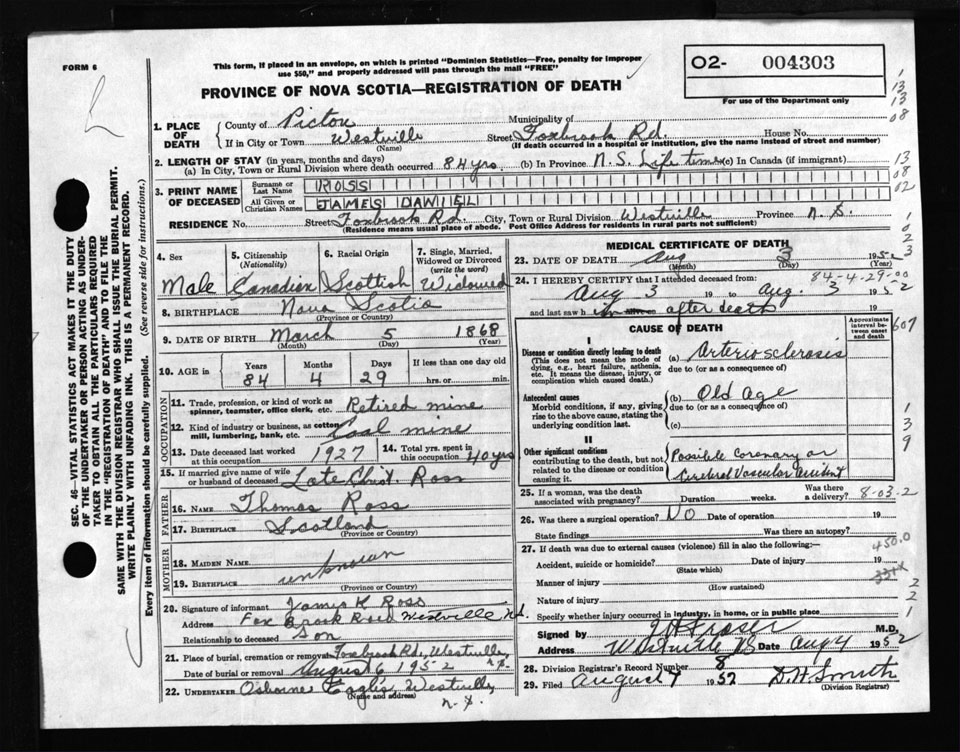 FORM 6
This form, if placed in an envelope, on which is printed "Dominion Statistics—Free, penalty for improper
use $50," and properly addressed will pass through the mail "FREE"
O2- 004303
For use of the Department only
PROVINCE OF NOVA SCOTIA—REGISTRATION OF DEATH
1. PLACE OF DEATH
County of Pictou Municipality of
If in City or Town Westville Street Foxbrook Rd. House No.
(Name) (If death occurred in a hospital or institution, give the name instead of street and number)
2. LENGTH OF STAY (in years, months and days)
(a) In City, Town or Rural Division where death occurred 84 yrs. (b) In Province N.S. Life time (c) In Canada (if immigrant)
3. PRINT NAME OF DECEASED
Surname or Last Name ROSS
All Given or Christian Names JAMES DANIEL
RESIDENCE No. Street Foxbrook Rd City, Town or Rural Division Westville Province N.S.
(Residence means usual place of abode. Post Office Address for residents in rural parts not sufficient)
4. Sex
Male
5. Citizenship (Nationality)
Canadian
6. Racial Origin
Scottish
7. Single, Married, Widowed or Divorced (write the word)
Widowed
8. BIRTHPLACE Nova Scotia
(Province or Country)
9. DATE OF BIRTH March 5 1868
(Month) (Day) (Year)
10. AGE in
Years Months Days If less than one day old
84 4 29 hrs. or min.
OCCUPATION
11. Trade, profession, or kind of work as spinner, teamster, office clerk, etc. Retired mine
12. Kind of industry or business, as cotton mill, lumbering, bank, etc. Coal mine
13. Date deceased last worked at this occupation 1927
14. Total yrs. spent in this occupation 40 yrs
15. If married give name of wife or husband of deceased Late Christ. Ross
FATHER
16. NAME Thomas Ross
17. BIRTHPLACE Scotland
(Province or Country)
MOTHER
18. MAIDEN NAME
unknown
19. BIRTHPLACE
(Province or Country)
20. Signature of informant James K Ross
Address Fox Brook Road Westville N.S.
Relationship to deceased Son
21. Place of burial, cremation or removal Foxbrook Rd, Westville, N.S.
Date of burial or removal August 6 1952
22. UNDERTAKER Osborne Westville
(Name and address)
N.S.
MEDICAL CERTIFICATE OF DEATH
23. DATE OF DEATH Aug 3 1952
(Month) (Day)
84-4-29-00
24. I HEREBY CERTIFY that I attended deceased from:
Aug 3 19 to Aug. 3 1952
and last saw h after death 19
CAUSE OF DEATH
Approximate interval between onset and death
I
Disease or condition directly leading to death (a) Arteriosclerosis
(This does not mean the mode of dying, e.g., heart failure, asthenia, etc. It means the disease, injury, or complication which caused death.)
due to (or as a consequence of)
Antecedent causes (b) Old Age
Morbid conditions, if any, giving rise to the above cause, stating the underlying condition last.
due to (or as a consequence of)
(c)
II
Other significant conditions contributing to the death, but not related to the disease or condition causing it.
Possible Coronary or
Cerebral Vascular Accident
25. If a woman, was the death associated with pregnancy? Duration weeks. Was there a delivery? 8-03-2
26. Was there a surgical operation? NO Date of operation 19
State findings Was there an autopsy?
27. If death was due to external causes (violence) fill in also the following:— 450.0
Accident, suicide or homicide? Date of injury 19
(State which)
Manner of injury
(How sustained)
Nature of injury
Specify whether injury occurred in industry, in home, or in public place
Signed by Fraser M.D.
Address Westville NS Date Aug 4 1952
28. Division Registrar's Record Number 8
29. Filed August 7 1952 D.H. Smith
(Division Registrar)
SEC. 46—VITAL STATISTICS ACT MAKES IT THE DUTY
OF THE UNDERTAKER OR PERSON ACTING AS UNDERTAKER TO OBTAIN ALL THE PARTICULARS REQUIRED
IN THE "REGISTRATION OF DEATH" AND TO FILE THE
SAME WITH THE DIVISION REGISTRAR WHO SHALL ISSUE THE BURIAL PERMIT.
WRITE PLAINLY WITH UNFADING INK. THIS IS A PERMANENT RECORD.
Every item of information should be carefully supplied. (See reverse side for instructions.)